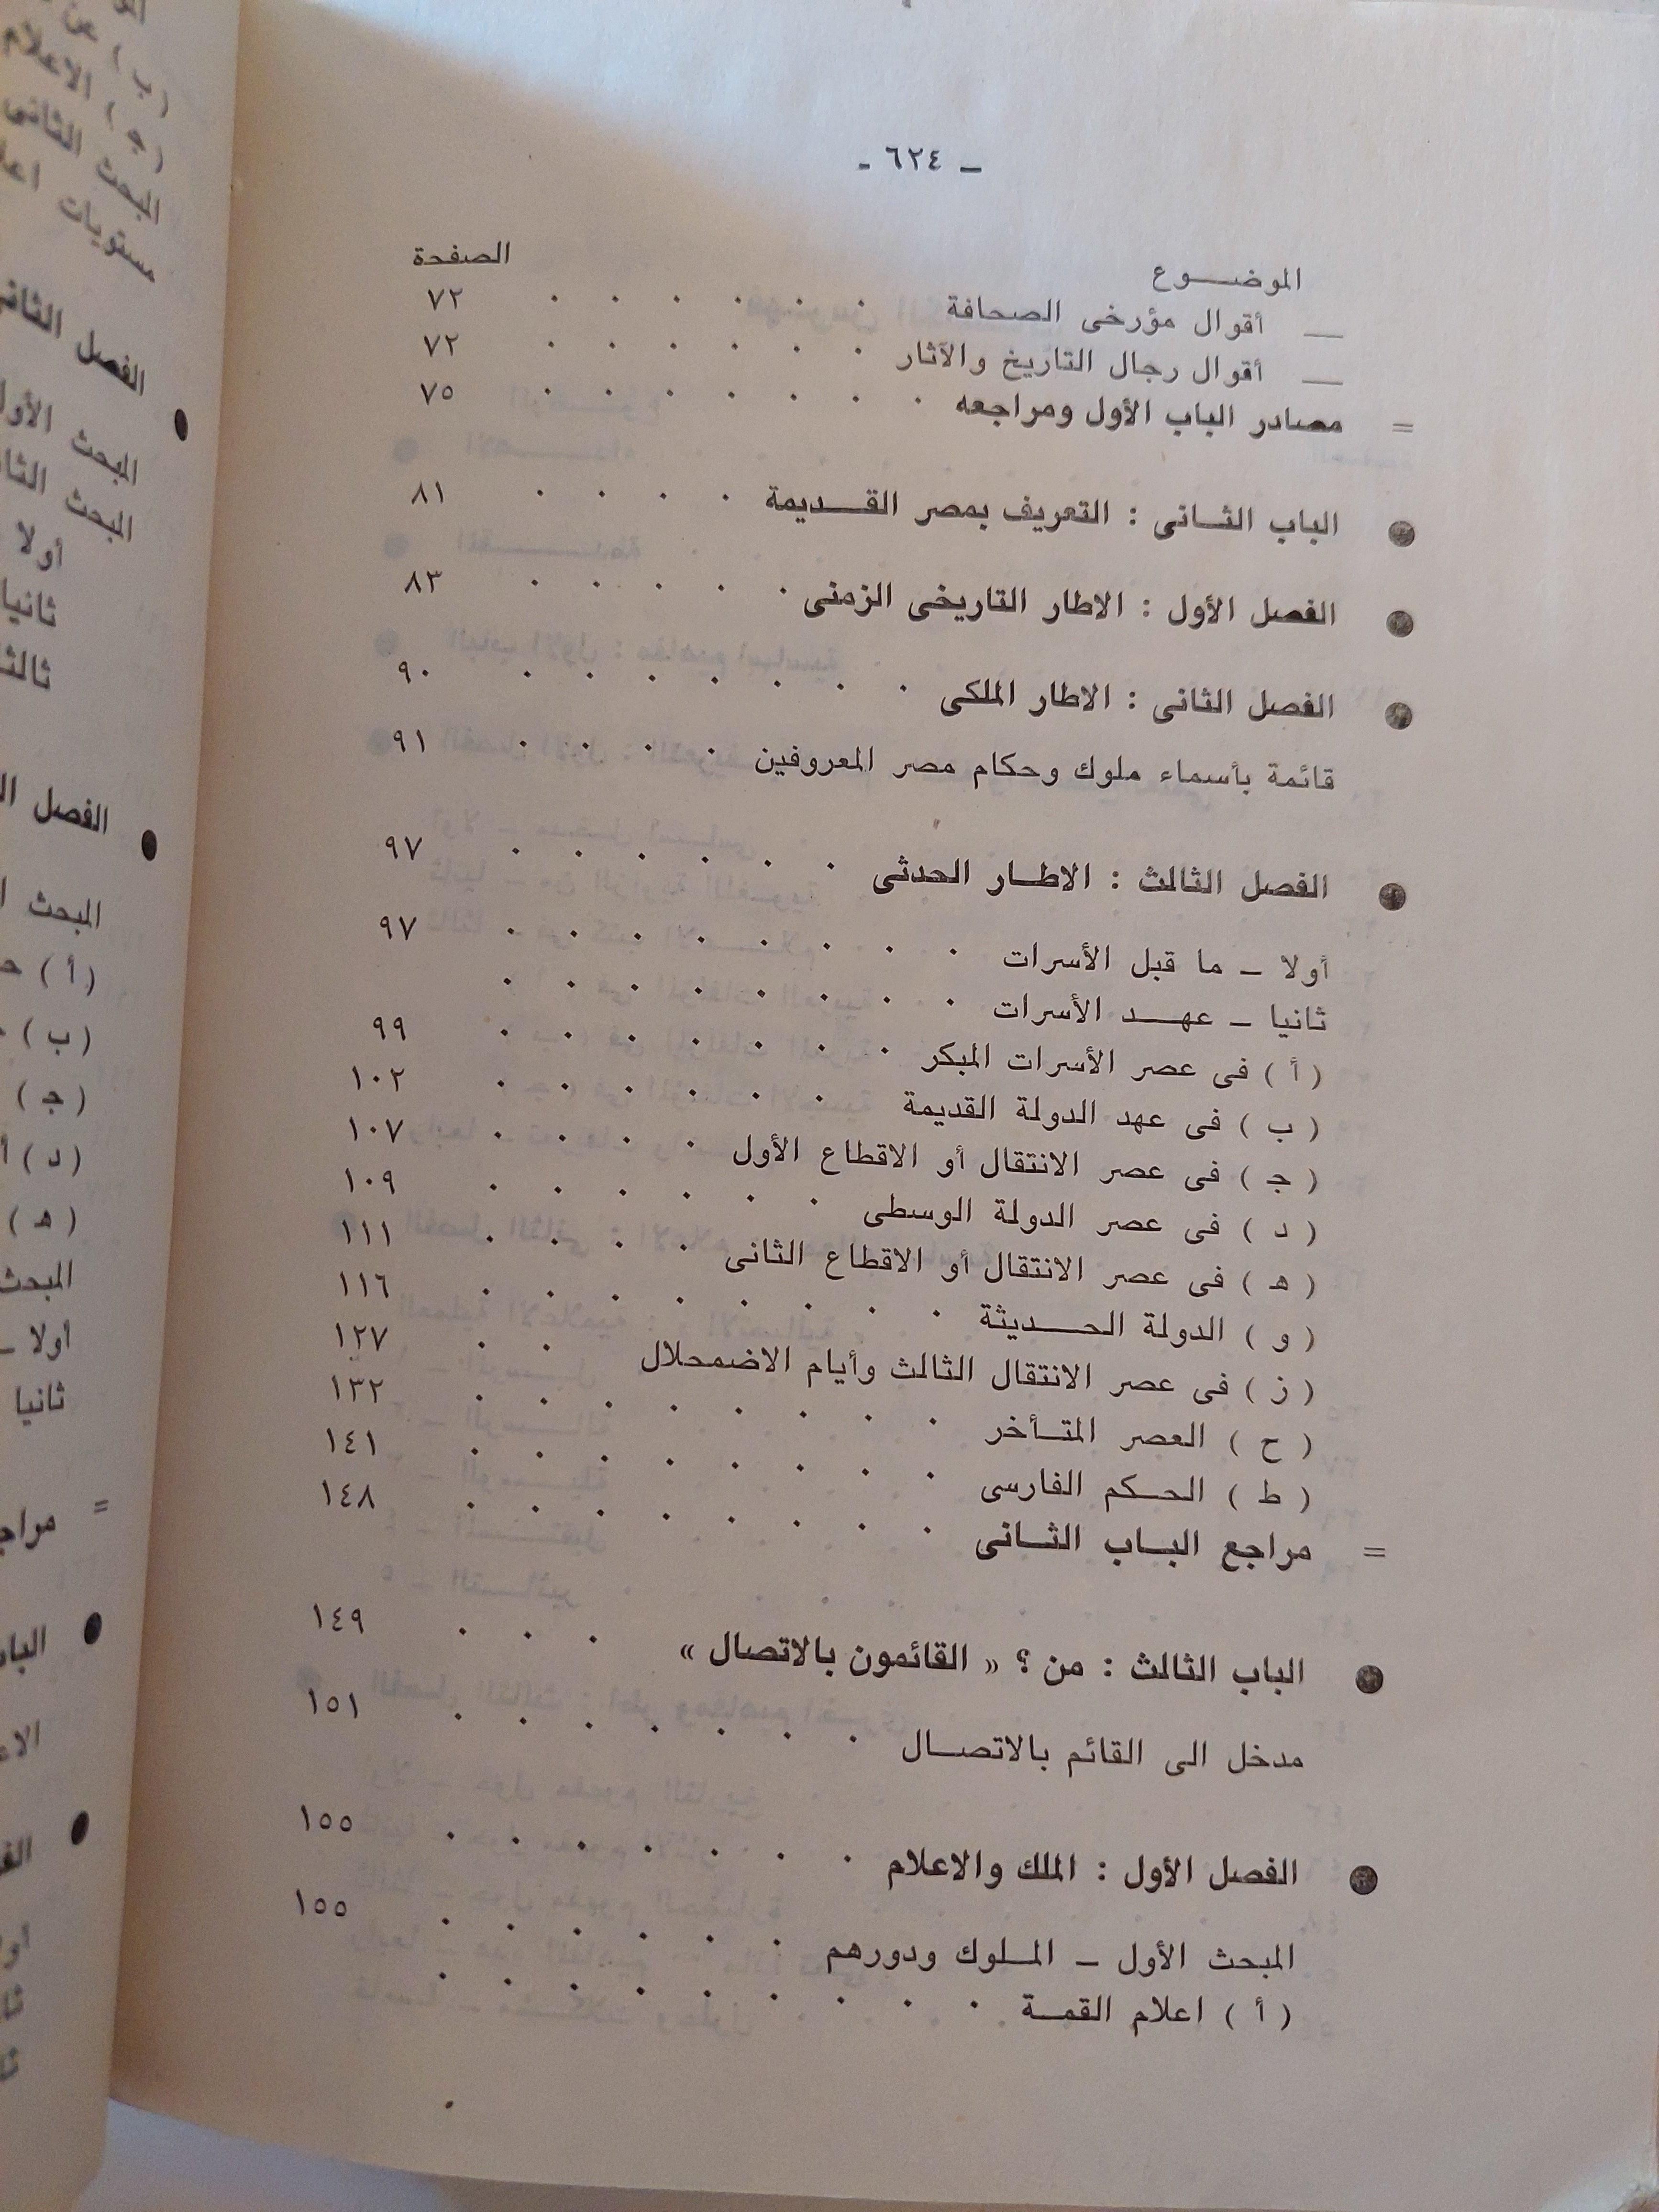 ـ ٦٢٤ ـ
الموضـــوع الصفحة
ــ أقوال مؤرخى الصحافة . . . . . . ٧٢
ــ أقوال رجال التاريخ والآثار . . . . . . ٧٢
= مصادر الباب الأول ومراجعه . . . . . . . ٧٥
● الباب الثـانى : التعريف بمصر القــديمة . . . . ٨١
● الفصل الأول : الاطار التاريخى الزمنى . . . . . ٨٣
● الفصل الثانى : الاطار الملكى . . . . . . . ٩٠
قائمة بأسماء ملوك وحكام مصر المعروفين . . . . ٩١
● الفصل الثالث : الاطـار الحدثى . . . . . . ٩٧
أولا ـ ما قبل الأسرات . . . . . . . . ٩٧
ثانيا ـ عهــد الأسرات . . . . . . . .
( أ ) فى عصر الأسرات المبكر . . . . . . . ٩٩
( ب ) فى عهد الدولة القديمة . . . . . . ١٠٢
( ج ) فى عصر الانتقال أو الاقطاع الأول . . . . ١٠٧
( د ) فى عصر الدولة الوسطى . . . . . . ١٠٩
( هـ ) فى عصر الانتقال أو الاقطاع الثانى . . . . ١١١
( و ) الدولة الحــديثة . . . . . . . . ١١٦
( ز ) فى عصر الانتقال الثالث وأيام الاضمحلال . . ١٢٧
( ح ) العصر المتـأخر . . . . . . . . ١٣٢
( ط ) الحـكم الفارسى . . . . . . . . ١٤١
= مراجع البـاب الثـانى . . . . . . . . ١٤٨
● الباب الثالث : من ؟ « القائمون بالاتصال » . . . ١٤٩
مدخل الى القائم بالاتصـال . . . . . . . ١٥١
● الفصل الأول : الملك والاعلام . . . . . . . ١٥٥
المبحث الأول ـ المـلوك ودورهم . . . . . . ١٥٥
( أ ) اعلام القمـة . . . . . . . . .